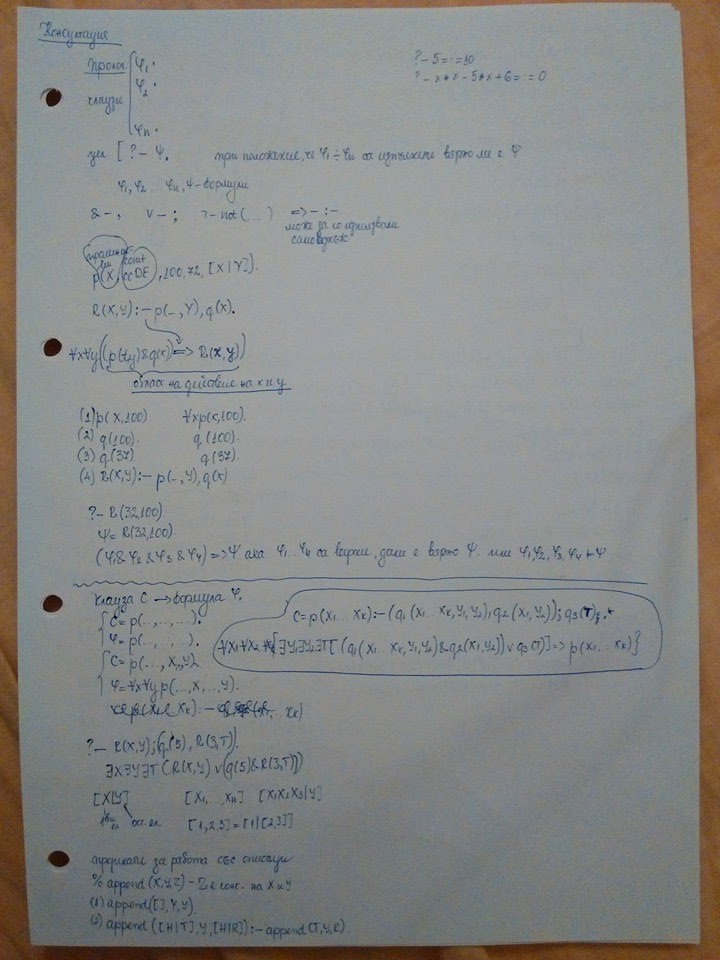 Консултация
?- 5=:=10
?- x*x-5*x+6=:=0
Пролог
φ1.
φ2.
клаузи
φn.
цел [ ?- ψ. при положение, че φ1÷φn са изпълнени вярно ли е ψ
φ1, φ2 ... φn, ψ - формули
& - , ∨ - ; ¬ - not(...) => - :-
може да го използваме
само веднъж
const
p(X, coDE, 100, 72, [X|Y]).
R(X,Y):- p(_,Y), q(X).
∀x∀y((p(z,y)&q(x)) => R(x,y))
област на действие на x и y
(1) p(X,100) ∀xp(x,100).
(2) q(100). q(100).
(3) q(37) q(37).
(4) R(X,Y):- p(_,Y), q(X)
?- R(32,100).
ψ = R(32,100).
(φ1&φ2&φ3&φ4) => ψ ака φ1..φ4 са верни, дали е вярно ψ. или φ1,φ2,φ3,φ4 ⊢ ψ
Клауза C → формула φ.
C = p(...,...,...).
φ = p(...,...,...).
C = p(..., X,,Y).
φ = ∀x∀y p(...,X,...,Y).
C = p(X1...Xk):- (q1(X1...Xk,Y1,Y2), q2(X1,Y2)); q3(T).
∀X1∀X2..∀Xk{∃Y1∃Y2∃T[(q1(X1...Xk,Y1,Y2)&q2(X1,Y2)) ∨ q3(T)] => p(X1...Xk)}
?- R(X,Y);(q(5), R(3,T)).
∃X∃Y∃T(R(X,Y) ∨ (q(5)&R(3,T)))
[X|Y] [X1,...,Xn] [X1X2X3|Y]
ост. ел. [1,2,3] = [1|[2,3]]
предикати за работа със списъци
% append(X,Y,Z) - Z е конк. на X и Y
(1) append([],Y,Y).
(2) append([H|T],Y,[H|R]):- append(T,Y,R).